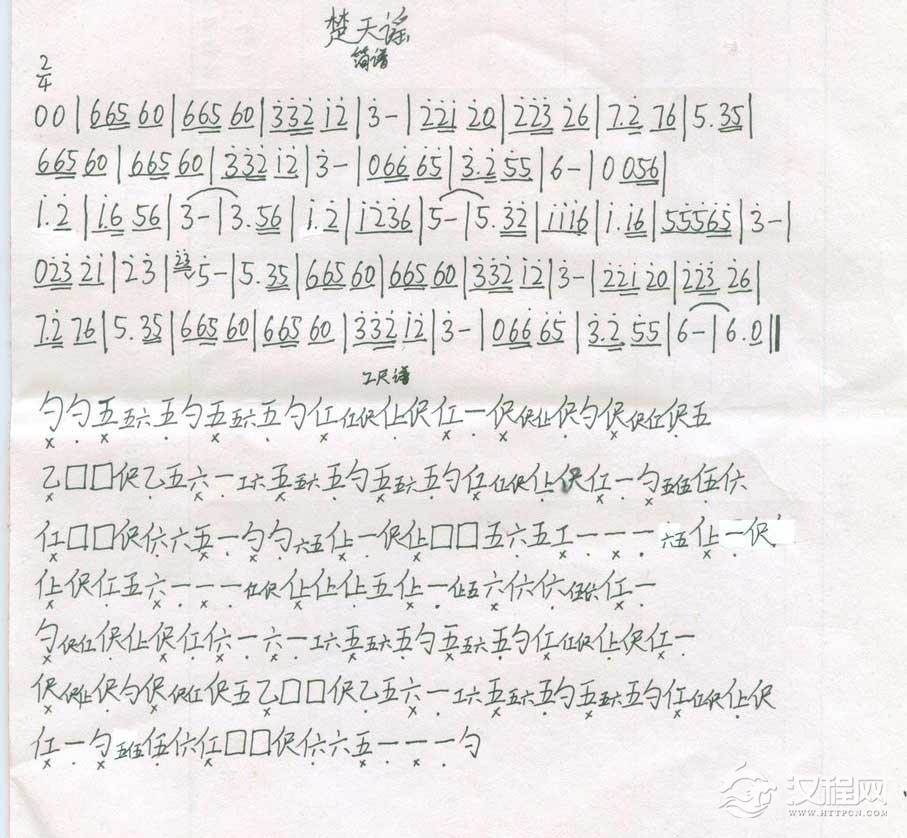 楚天谣
简谱
2/4
0 0 | 665 60 | 665 60 | 3̇3̇2̇ 1̇2̇ | 3̇ - | 2̇2̇1̇ 2̇0 | 2̇2̇3̇ 2̇6 | 7.2̇ 76 | 5.35 |
665 60 | 665 60 | 3̇3̇2̇ 1̇2̇ | 3̇ - | 066̇ 6̇5̇ | 3̇.2̇ 5̇5̇ | 6 - | 0 056 |
1̇.2̇ | 1̇.6 56 | 3 - | 3.56 | 1̇.2̇ | 1̇2̇3̇6 | 5 - | 5.3̇2̇ | 1̇1̇1̇6 | 1̇.1̇6 | 5 5 5̇6̇5̇ | 3̇ - |
02̇3̇ 2̇1̇ | 2̇ 3̇ | 2̇3̇ 5̇ - | 5.35 | 665 60 | 665 60 | 3̇3̇2̇ 1̇2̇ | 3̇ - | 2̇2̇1̇ 2̇0 | 2̇2̇3̇ 2̇6 |
7.2̇ 76 | 5.35 | 665 60 | 665 60 | 3̇3̇2̇ 1̇2̇ | 3̇ - | 066̇ 6̇5̇ | 3̇.2̇ 5̇5̇ | 6 - | 6.0 ‖
工尺谱
勺勺五五六五勺五五六五勺仜仜伬仩伬仜一伬伬仩伬勺伬伬仜伬五
乙□□伬乙五六一工六五五六五勺五五六五勺仜仜伬仩伬仜一勺五伍伍㐲
仜□□伬㐲六五一勺勺六五仩一伬仩□□五六五工一一一六五仩一伬
仩伬仜五六一一一仜伬仩仩仩五仩一仩五六㐲㐲伍㐲仜一
勺伬仜伬仩伬仜㐲一六一工六五五六五勺五五六五勺仜仜伬仩伬仜一
伬伬仩伬勺伬伬仜伬五乙□□伬乙五六一工六五五六五勺五五六五勺仜仜伬仩伬
仜一勺五伍伍㐲仜□□伬㐲六五一一一勺
汉程网
WWW.HTTPCN.COM